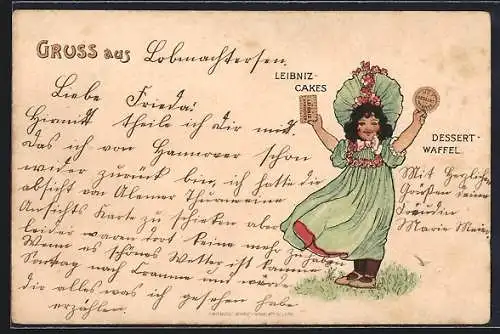 GRUSS aus Lobmachtersen.
LEIBNIZ-
CAKES
DESSERT-
WAFFEL
Liebe Frieda!
Hiermit theile ich dir mit
Das ich von Hannover schon
wider zurück bin, ich hatte die
absicht von
Ansichts Karte zu schicken aber
leider waren dort keine mehr zu haben
Wenn es schönes Wetter ist komme
nach und werde
dir alles was ich gesehen habe
erzählen.
Mit Herzlichen
Grüßen deine
Freundin
Marie